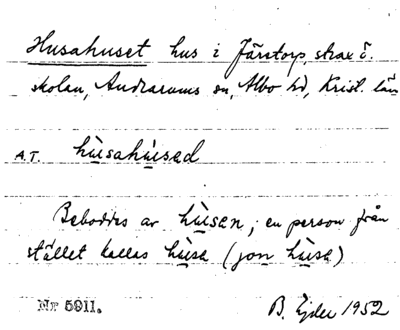 Husahuset hus i Järstorp, strax ö.
skolan, Andrarums sn, Albo hd, Krist. län
A.T. hu̱sahu̱sed
Beboddes av hu̱sen, en person från
stället kallas hu̱sa (jon hu̱sa)
Nr 5911. B. Ejder 1952